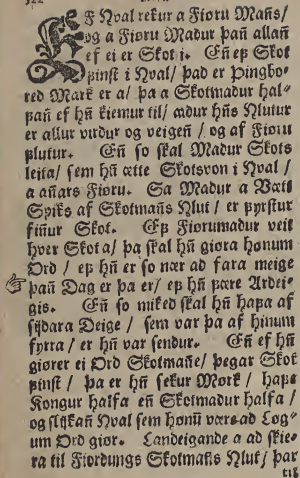 EF Hval rekur a Fiøru Mañs/
og a Fiøru Madur þañ allañ
ef ei er Skot i. Eñ eF Skot
Fiñst i Hval/ þad er Þingbo-
red Mark er a/ þa a Skotmadur hal-
fañ ef hñ kiemur til/ ædur hñs Hlutur
er allur virdur og veigeñ/ og af Fiøru
Hlutur. Eñ so skal Madur Skots
leita/ sem hñ ætte Skotsvon i Hval/
a añars Fiøru. Sa Madur a Vætt
Spiks af Skotmañs Hlut/ er fyrstur
fiñur Skot. Ef Fiørumadur veit
hver Skot a/ þa skal hñ giøra hønum
Ord/ ef hñ er so nær ad fara meige
þañ Dag er þa er/ ef hñ være Ardei-
gis. Eñ so miked skal hñ hafa af
sijdara Deige/ sem var þa af hinum
fyrra/ er hñ var sendur. Eñ ef hñ
giører ei Ord Skotmañe/ þegar Skot
fiñst/ þa er hñ sekur Mørk/ hafe
Kongur halfa eñ Skotmadur halfa/
og slijkañ Hval sem hønũ være ad Løg-
um Ord giør. Landeigande a ad skie-
ra til Fiordungs Skotmañs Hlut/ þar
til